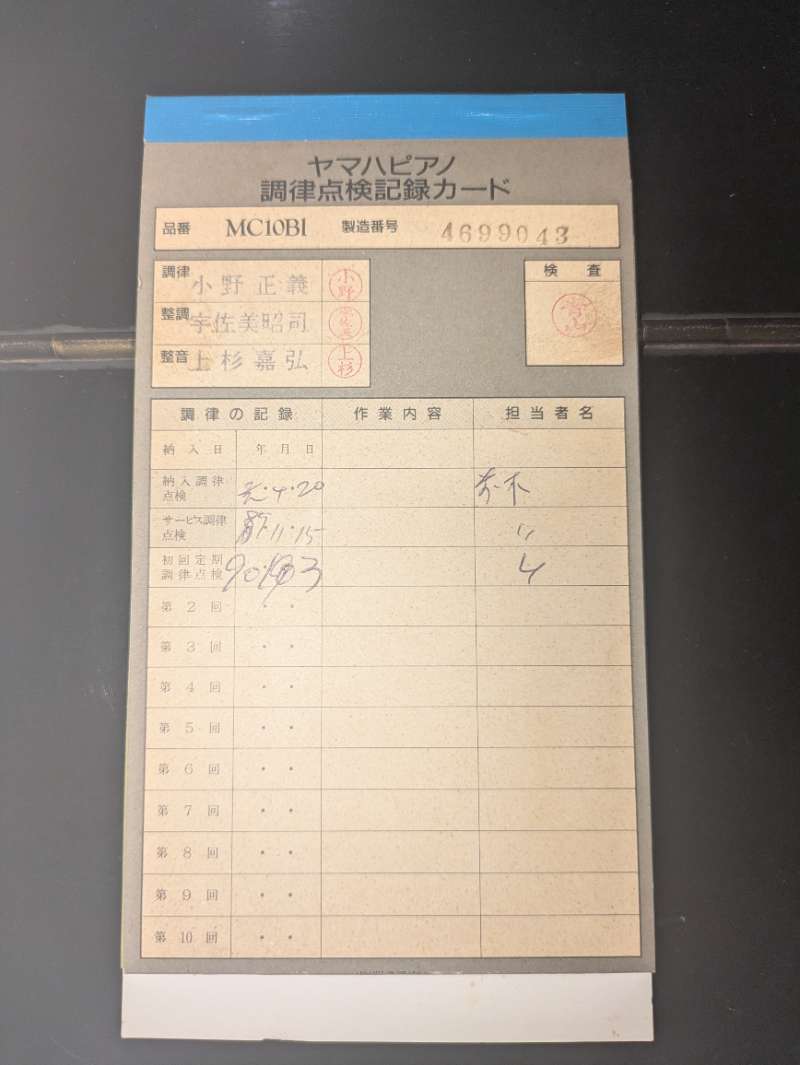 ヤマハピアノ
調律点検記録カード
品番 MC10BI 製造番号 4699043
調律 小野正義 小野
整調 宇佐美昭司
整音 上杉嘉弘 上杉
検査
調律の記録 作業内容 担当者名
納入日 年月日
納入調律点検 元・4・20
サービス調律点検 11・15 〃
初回定期調律点検 90
第2回 ・・
第3回 ・・
第4回 ・・
第5回 ・・
第6回 ・・
第7回 ・・
第8回 ・・
第9回 ・・
第10回 ・・